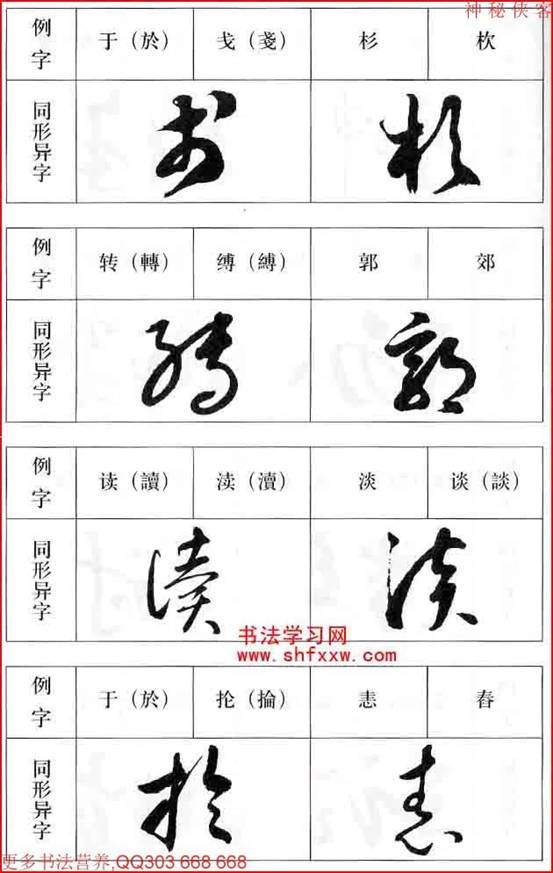 神秘侠客
例字 于（於） 戋（戔） 杉 杴
同形异字
例字 转（轉） 缚（縛） 郭 郊
同形异字
例字 读（讀） 渎（瀆） 淡 谈（談）
同形异字
书法学习网
www.shfxxw.com
例字 于（於） 抡（掄） 恚 舂
同形异字
更多书法营养,QQ303 668 668